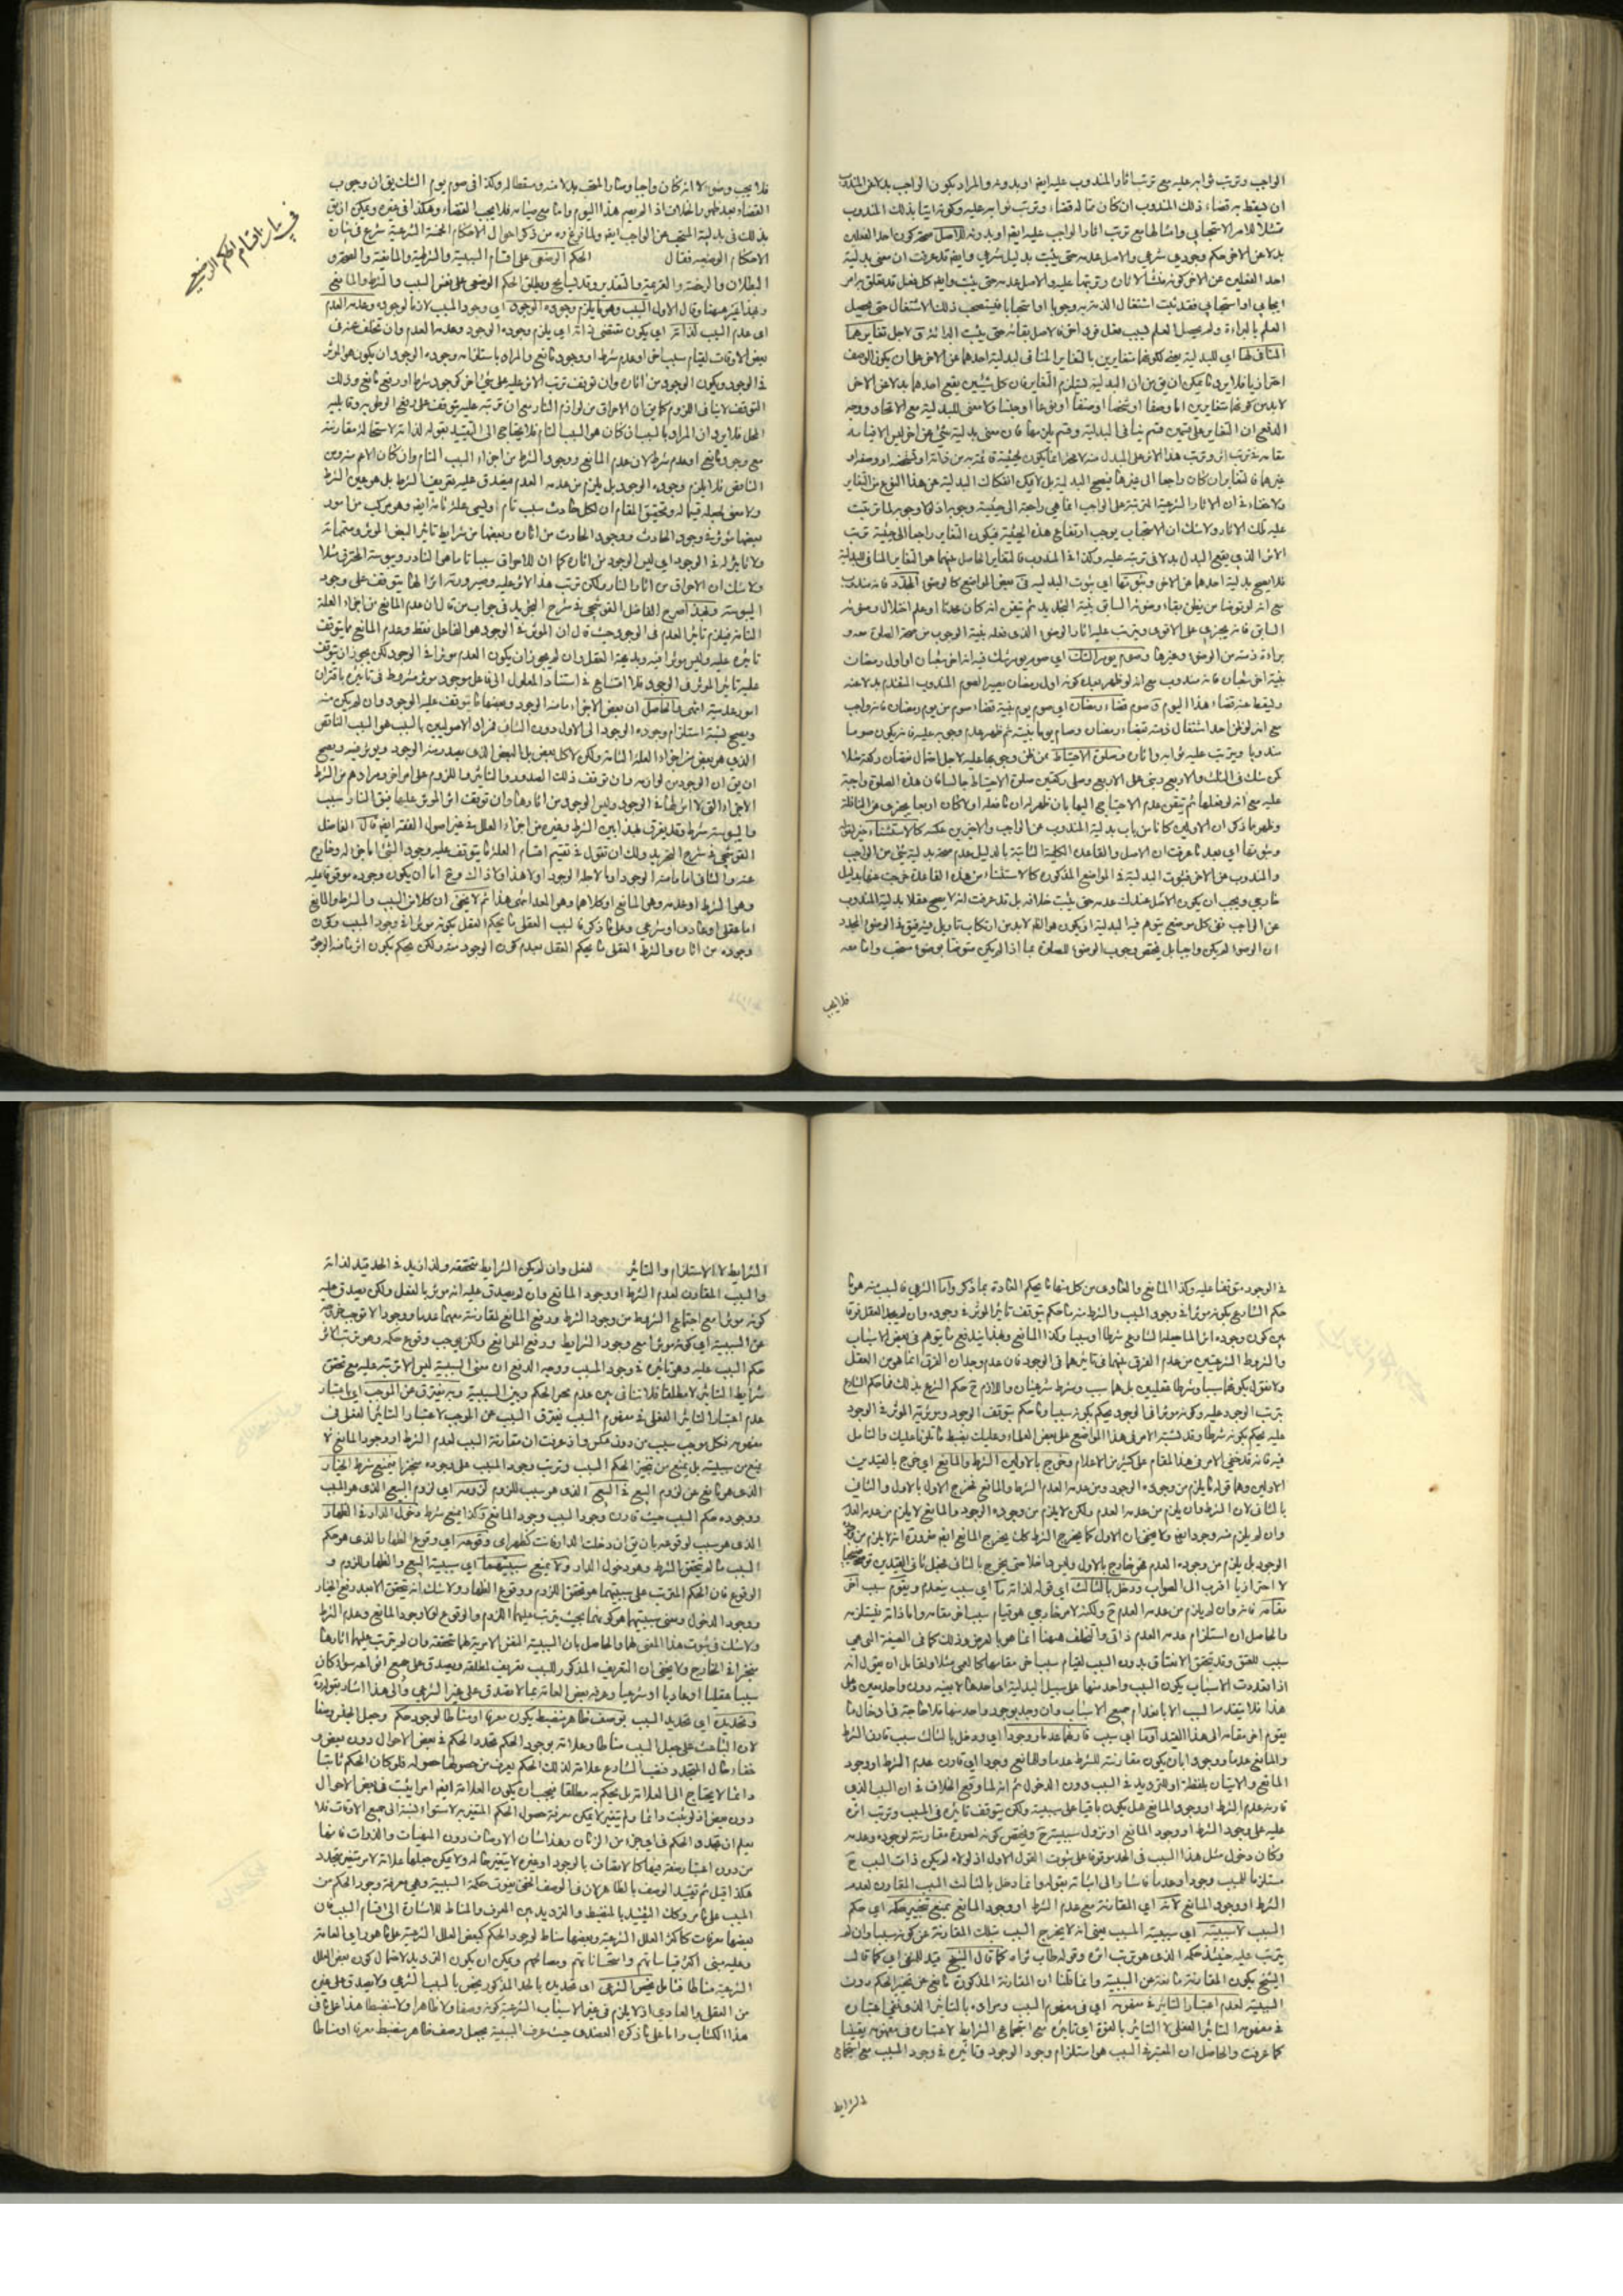 الواجب وترتب ثوابه عليه مع ترتب اثار المندوب عليه ايضا او بدونه والمراد بكون الواجب بدلا عن المندوب
ان يسقط به قضاء ذلك المندوب ان كان مما له قضاء وترتب ثوابه عليه وكونه اتيا بذلك المندوب
بدلا عن الاخر حكم وجودي شرعي والاصل عدمه حتى يثبت بدليل شرعي وايضا قد عرفت ان معنى بدلية
احد الفعلين عن الاخر كونه منشأ لاثاره وترتبها عليه والاصل عدمه حتى يثبت وايضا كل فعل تعلق به امر
ايجابي او استحبابي فقد ثبت اشتغال الذمة به وجوبا او استحبابا فيستصحب ذلك الاشتغال حتى يحصل
العلم بالبراءة ولم يحصل العلم بسبب فعل فرد اخر فالاصل بقائه حتى يثبت البرائة لاجل تغايرهما
المنافي لها اي للبدلية يعنى لكونهما متغايرين بالتغاير المنافي لبدلية احدهما عن الاخر
لا بد من كونهما متغايرين اما وصفا او شخصا او صنفا او نوعا او جنسا فلا معنى للبدلية مع الاتحاد ووجه
الدفع ان التغاير على قسمين قسم ينافي البدلية وقسم يلزمها فان معنى بدلية شئ عن اخر ليس الا قيامه
عليه تلك الاثار ولا شك ان الاستحباب يوجب ارتفاع هذه الحيثية فيكون التغاير راجعا الى حيثية ترتب
الاثر الذي يقع البدل بدلا في ترتبه عليه وكذا في المندوب فالتغاير الحاصل بينهما هو التغاير المنافي للبدلية
فلا يصح بدلية احدهما عن الاخر وثبوتها اي ثبوت البدلية في بعض المواضع كالوضوء المجدد فانه مندوب
السابق فانه يجزي على الاقوى ويترتب عليه اثار الوضوء الذي فعله بنية الوجوب من صحة الصلوة معه و
براءة ذمته من الوضوء وغيرها وصوم يوم الشك اي صوم يوم يشك فيه انه اخر شعبان او اول رمضان
بنية اخر شعبان فانه مندوب مع انه لو ظهر بعد كونه اول رمضان يصير الصوم المندوب المتقدم بدلا عنه
مندوبا ويترتب عليه ثوابه واثاره وصلوة الاحتياط
كمن شك في الثلث والاربع وبنى على الاربع وصلى ركعتين صلوة الاحتياط جالسا فان هذه الصلوة واجبة
عليه مع انه لو فعلها ثم تيقن عدم الاحتياج اليها بان ظهر له ان ما فعله اولا كان اربعا يجزي عن النافلة
وظهر مما ذكر ان الاولين كانا من باب بدلية المندوب عن الواجب والاخيرين عكسه كالاستثناء
وثبوتها اي بعد ما عرفت ان الاصل والقاعدة الكلية الثابتة بالدليل عدم صحة بدلية شئ من الواجب
والمندوب عن الاخر فثبوت البدلية في المواضع المذكورة كالاستثناء من هذه القاعدة خرجت عنها بدليل
خارجي ويجب ان يكون الاصل عندك عدمه حتى يثبت خلافه بل قد عرفت انه لا يصح عقلا بدلية المندوب
عن الواجب ففي كل موضع يتوهم فيه البدلية لا بد من ارتكاب تاويل فيه ففي الوضوء المجدد
ان الوضوء لم يكن واجبا بل يختص وجوب الوضوء للصلوة بما اذا لم يكن متوضأ بوضوء مستحب واما معه
فلا يجب
في بيان اقسام الحكم الوضعي
فلا يجب وضوء لا انه كان واجبا وصار المستحب بدلا منه ومسقطا له وكذا في صوم يوم الشك يق ان وجوب
القضاء بعد ظهور الخلاف اذا لم يصم هذا اليوم واما مع صيامه فلا يجب القضاء وهكذا في غيره ويمكن ان يق
بذلك في بدلية المستحب عن الواجب ايضا ولما فرغ ره من ذكر احوال الاحكام الخمسة الشرعية شرع في بيان
الاحكام الوضعية فقال الحكم الوضعي على اقسام السببية والشرطية والمانعية والصحة و
البطلان والرخصة والعزيمة والتقدير وقد يسامح ويطلق الحكم الوضعي على نفس السبب والشرط والمانع
وبهذا عبر هيهنا وقال الاول السبب وهو ما يلزم وجوده الوجود اي وجود المسبب لازما لوجوده وعدمه العدم
اي عدم السبب لذاته اي يكون مقتضى ذاته اي يلزم وجوده الوجود وعدمه العدم وان تخلف عنه في
بعض الاوقات لقيام سبب اخر او عدم شرط او وجود مانع والمراد باستلزامه وجوده الوجود ان يكون هو المؤثر
في الوجود ويكون الوجود من اثاره وان توقف ترتب الاثر عليه على شئ اخر كوجود شرط او رفع مانع وذلك
التوقف لا ينافي اللزوم كما يق ان الاحراق من لوازم النار مع ان ترتبه عليه يتوقف على رفع الرطوبة وقابلية
المحل فلا يرد ان المراد بالسبب ان كان هو السبب التام فلا يحتاج الى التقييد بقوله لذاته لاستحالة مقارنته
مع وجود مانع او عدم شرط لان عدم المانع ووجود الشرط من اجزاء السبب التام وان كان الاعم منه ومن
الناقص فلا يلزم وجوده الوجود بل يلزم من عدمه العدم فيصدق عليه تعريف الشرط بل هو عين الشرط
ولا معنى لجعله قسيما له وتحقيق المقام ان لكل حادث سبب تام ويسمى علة تامة ايضا وهو مركب من امور
بعضها مؤثر في وجود الحادث ووجود الحادث من اثاره وبعضها من شرايط تاثير البعض المؤثر ومتمماته
ولا تاثير له في الوجود اي ليس الوجود من اثاره كما ان للاحراق سببا تاما هو النار ويبوسة المحترق مثلا
ولا شك ان الاحراق من اثار النار ولكن ترتب هذا الاثر عليه وصيرورته اثرا لها يتوقف على وجود
اليبوسة وبهذا صرح الفاضل القوشجي في شرح التجريد في جواب من قال ان عدم المانع من اجزاء العلة
التامة فيلزم تاثير العدم في الوجود حيث قال ان المؤثر في الوجود هو الفاعل فقط وعدم المانع مما يتوقف
تاثيره عليه وليس مؤثرا فيه وبديهة العقل وان لم يجوز ان يكون العدم مؤثرا في الوجود لكن يجوز ان يتوقف
عليه تاثير المؤثر في الوجود فلا امتناع في استناد المعلول الى فاعل موجود مؤثر مشروط في تاثيره باقتران
امور عدمية انتهى فالحاصل ان بعض الاجزاء ما منه الوجود وبعضها ما يتوقف عليه الوجود وان لم يكن منه
ويصح نسبة استلزام وجوده الوجود الى الاول دون الثاني فمراد الاصوليين بالسبب هو السبب الناقص
الذي هو بعض من اجزاء العلة التامة ولكن لا كل بعض بل البعض الذي يصدر منه الوجود ويؤثر فيه ويصح
ان يق ان الوجود من لوازمه وان توقف ذلك الصدور والتاثير واللزوم على امر اخر ومرادهم من الشرط
الاجزاء التي لا اثر لها في الوجود وليس الوجود من اثارها وان توقف اثر المؤثر عليها فيق النار سبب
واليبوسة شرط وقد يفرق بهذا بين الشرط وغيره من اجزاء العلل في غير اصول الفقه ايضا قال الفاضل
القوشجي في شرح التجريد ولك ان تقول في تقسيم اقسام العلة ما يتوقف عليه وجود الشئ اما جزء له وخارج
عنه والثاني اما ما منه الوجود او ما لاجله الوجود او لا هذا ولا ذاك وح اما ان يكون وجوده موقوفا عليه
وهو الشرط او عدمه وهو المانع او كلاهما وهو المعد انتهى هذا ثم لا يخفى ان كلا من السبب والشرط والمانع
اما عقلي او عادي او شرعي وعلى ما ذكر فالسبب العقلي ما يحكم العقل بكونه مؤثرا في وجود المسبب وكون
وجوده من اثاره والشرط العقلي ما يحكم العقل بعدم كون الوجود منه ولكن يحكم بكون اثر ما منه الوجود
في الوجود متوقفا عليه وكذا المانع والعادي من كل منها ما يحكم العادة بما ذكر واما الشرعي فالسبب منه هو ما
حكم الشارع بكونه مؤثرا في وجود المسبب والشرط منه ما حكم بتوقف تاثير المؤثر في وجوده وان لم يجد العقل فرقا
بين كون وجوده اثرا لما جعله الشارع شرطا او سببا وكذا المانع وبهذا يندفع ما يتوهم في بعض الاسباب
والشروط الشرعيتين من عدم الفرق بينهما في تاثيرهما في الوجود فان عدم وجدان الفرق انما هو من العقل
ولا نقول بكونهما سببا وشرطا عقليين بل هما سبب وشرط شرعيان واللازم ح حكم الشرع بذلك فما حكم الشارع
بترتب الوجود عليه وكونه مؤثرا في الوجود يحكم بكونه سببا وما حكم بتوقف الوجود ومؤثرية المؤثر في الوجود
عليه يحكم بكونه شرطا وقد يشتبه الامر في هذا المواضع على بعض العلماء وعليك بضبط ما تلونا عليك والتامل
فيه فانه قد خفى الامر في هذا المقام على كثير من الاعلام وخرج بالاولين الشرط والمانع اي خرج بالقيدين
الاولين وهما قوله ما يلزم من وجوده الوجود ومن عدمه العدم الشرط والمانع فخرج الاول بالاول والثاني
بالثاني لان الشرط وان يلزم من عدمه العدم ولكن لا يلزم من وجوده الوجود والمانع لا يلزم من عدمه العدم
الوجود بل يلزم من وجوده العدم فهو خارج بالاول وليس داخلا حتى يخرج بالثاني
ودخل بالثالث اي قوله لذاته ما اي سبب ينعدم ويقوم سبب اخر
مقامه فانه وان لم يلزم من عدمه العدم ح ولكنه لامر خارجي هو قيام سبب اخر مقامه واما ذاته فيستلزمه
والحاصل ان استلزام عدمه العدم ذاتي والتخلف هيهنا انما هو بالعرض وذلك كما في الصيغة التي هي
سبب للعتق وقد يتحقق الانعتاق بدون السبب لقيام سبب اخر مقامها كالعمى مثلا ولقائل ان يقول انه
اذا تعددت الاسباب يكون السبب واحد منها على سبيل البدلية اي احدها لا بعينه دون واحد معين وعلى
هذا فلا ينعدم السبب الا بانعدام جميع الاسباب وان وجد بوجود واحد منها فلا حاجة في ادخال ما
يقوم اخر مقامه الى هذا القيد او ما اي سبب قارنهما عدما ووجودا اي ودخل بالثالث سبب قارن الشرط
والمانع عدما ووجودا بان يكون مقارنته للشرط عدما وللمانع وجودا اي قارن عدم الشرط او وجود
المانع والاتيان بلفظة او للترديد في السبب دون الدخول ثم انه لما وقع الخلاف في ان السبب الذي
قارنه عدم الشرط او وجود المانع هل يكون باقيا على سببيته ولكن يتوقف تاثيره في المسبب وترتب اثره
عليه على وجود الشرط او وجود المانع او تزول سببيته ح
وكان دخول مثل هذا السبب في الحد موقوفا على ثبوت القول الاول اذ لولاه لم يكن ذات السبب ح
مستلزما للمسبب وجودا وعدما فاشار الى اثباته بقوله وانما دخل بالثالث السبب المقارن لعدم
الشرط او وجود المانع لانه اي المقارنة مع عدم الشرط او وجود المانع يمنع تنجيز حكمه اي حكم
السبب لا سببيته اي سببية السبب يعني انه لا يخرج السبب بتلك المقارنة عن كونه سببا وان لم
يترتب عليه حينئذ حكمه الذي هو ترتب اثره وقوله طاب ثراه كما قال الشيخ قيد للنفي اي كما قال
الشيخ بكون المقارنة مانعة عن السببية وانما قلنا ان المقارنة المذكورة مانع عن تنجيز الحكم دون
السببية لعدم اعتبار التاثير في مفهومه اي في مفهوم السبب ومراده بالتاثير الذي نفى اعتباره
في مفهومه التاثير الفعلي لا التاثير بالقوة اي تاثيره مع اجتماع الشرايط لاعتباره في مفهومه يقينا
كما عرفت والحاصل ان المعتبر في السبب هو استلزام وجود الوجود وتاثيره في وجود المسبب مع اجتماع
الشرايط
الشرايط لا الاستلزام والتاثير بالفعل وان لم يكن الشرايط متحققة ولذا زيد في الحد قيد لذاته
والسبب المقارن لعدم الشرط او وجود المانع وان لم يصدق عليه انه مؤثر بالفعل ولكن يصدق عليه
كونه مؤثرا مع اجتماع الشروط من وجود الشرط ورفع المانع فمقارنته معهما عدما ووجودا لا توجب خروجه
عن السببية اي كونه مؤثرا مع وجود الشرايط ورفع الموانع ولكن يوجب وقوع حكمه وهو ترتب الاثر
حكم السبب عليه وهو تاثيره في وجود المسبب ووجه الدفع ان معنى السببية ليس الا ترتبه عليه مع تحقق
شرايط التاثير لا مطلقا فلا تنافي بين عدم تنجز الحكم وبين السببية وبه يفترق عن الموجب اي باعتبار
عدم اعتبار التاثير الفعلي في مفهوم السبب يفترق السبب عن الموجب لاعتبار التاثير الفعلي في
مفهومه فكل موجب سبب من دون عكس واذ عرفت ان مقارنة السبب لعدم الشرط او وجود المانع لا
يمنع من سببيته بل يمنع من تنجيز الحكم السبب وترتب وجود المسبب على وجوده منجزا فيمنع شرط الخيار
الذي هو مانع عن لزوم البيع في البيع الذي هو سبب للزوم لزومه اي لزوم البيع الذي هو المسبب
ووجوده حكم السبب حيث قارن وجود السبب وجود المانع وكذا يمنع شرط دخول الدار في الظهار
الذي هو سبب لوقوعه بان يق ان دخلت الدار فانت كظهر امي وقوعه اي وقوع الظهار الذي هو حكم
السبب ما لم يتحقق الشرط وهو دخول الدار ولا يمنع سببيتهما اي سببية البيع والظهار للزوم و
الوقوع فان الحكم المترتب على سببيتهما هو تحقق اللزوم ووقوع الظهار ولا شك انه يتحقق الا بعد رفع الخيار
ووجود الدخول ومعنى سببيتهما هو كونهما بحيث يترتب عليهما اللزوم والوقوع لولا وجود المانع وعدم الشرط
ولا شك في ثبوت هذا المعنى لهما والحاصل بان السببية النفس الامرية لهما متحققة وان لم يترتب عليهما اثارها
منجزا في الخارج ولا يخفى ان التعريف المذكور للسبب تعريف لمطلقه ويصدق على جميع افراده سواء كان
سببا عقليا او عاديا او شرعيا وعرفه بعض العامة بما لا يصدق على غير الشرعي والى هذا اشار بقوله
وتحديده اي تحديد السبب بوصف ظاهر منضبط يكون معرفا او مناطا لوجود حكم
لان الباعث على جعل السبب مناطا وعلامة لوجود الحكم تجدد الحكم في بعض الاحوال دون بعض و
خفاء حال التجدد فنصب الشارع علامة لذلك الحكم يعرف من حصولها حصوله فلو كان الحكم ثابتا
دائما لا يحتاج الى العلامة بل يحكم به مطلقا فيجب ان يكون العلامة ايضا امرا يثبت في بعض الاحوال
دون بعض اذ لو ثبت دائما ولم يتغير لا يمكن معرفة حصول الحكم المتغير به لاستواء نسبته الى جميع الاوقات فلا
يعلم ان تجدد الحكم في اي جزء من الزمان وهذا شان الاوصاف دون الماهيات والذوات فانها
من دون اعتبار صفة فيها كالاتصاف بالوجود او غيره لا يتغير حاله ولا يمكن جعلها علامة لامر متغير متجدد
هكذا قيل ثم تقييد الوصف بالظاهر لان في الوصف الخفي يفوت حكمة السببية وهي معرفة وجود الحكم من
السبب على ما مر وكذا التقييد بالمنضبط والترديد بين المعرف والمناط للاشارة الى اقسام السبب فان
بعضها معرفات كاكثر العلل الشرعية وبعضها مناط لوجود الحكم كبعض العلل الشرعية على ما هو راي العامة
وعليه مبنى اكثر قياساتهم واستحساناتهم ومصالحهم ويمكن ان يكون الترديد لاحتمال كون بعض العلل
الشرعية مناطا فتامل يخص الشرعي اي تحديده بالحد المذكور يخص بالسبب الشرعي ولا يصدق على غيره
من العقلي والعادي اذ لا يلزم في غير الاسباب الشرعية كونه وصفا ولا ظاهرا ولا منضبطا هذا على ما في
هذا الكتاب واما على ما ذكره العضدي حيث عرف السببية بجعل وصف ظاهر منضبط معرفا او مناطا